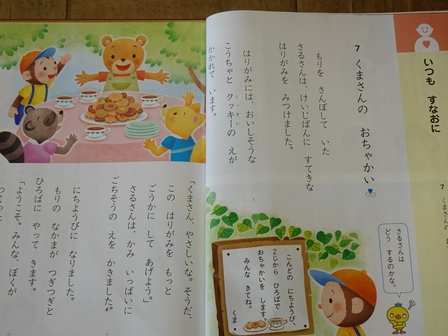 いつも すなおに
7 くまさんの おちゃかい
もりを さんぽして いた
さるさんは、けいじばんに すてきな
はりがみを みつけました。
はりがみには、おいしそうな
こうちゃと クッキーの えが
かかれて います。
さるさんは
どう するのかな。
こんどの にちようび、
2じから ひろばで
おちゃかいを します。
みんな きてね。
くま
「くまさん、やさしいな。そうだ、
この はりがみを もっと
ごうかに して あげよう。」
さるさんは、かみ いっぱいに
ごちそうの えを かきました。
にちようびに なりました。
もりの なかまが つぎつぎと
ひろばに やって きます。
「ようこそ。みんな、ぼくが